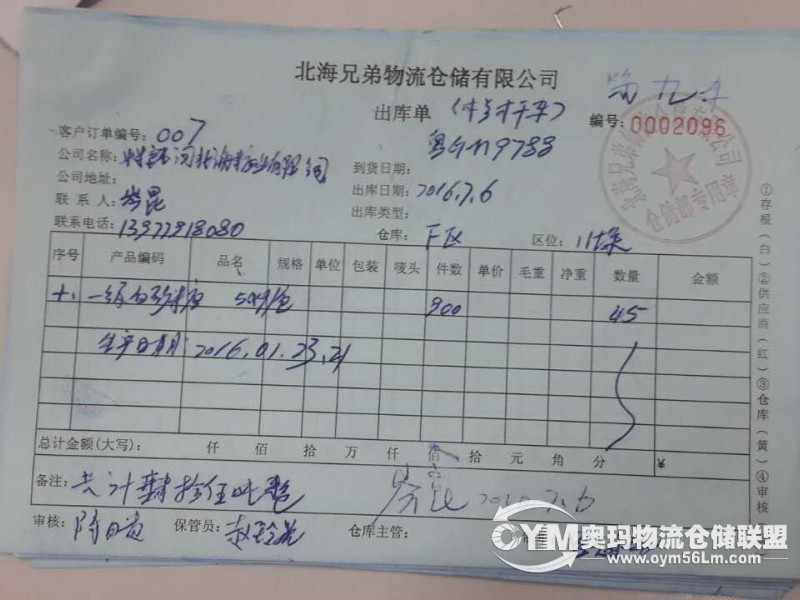 北海兄弟物流仓储有限公司
第九车
出库单
编号: 0002096
客户订单编号: 007
粤G M9788
公司名称: 有限公司
到货日期:
公司地址:
出库日期: 2016.7.6
联系人: 岑昆
出库类型:
联系电话: 13977918080
仓库: F区 区位: 11垛
序号 产品编码 品名 规格 单位 包装 唛头 件数 单价 毛重 净重 数量 金额
十. 一级白砂糖 50kg/包 900 45
生产日期: 2016.01.23.21
总计金额(大写): 仟 佰 拾 万 仟 佰 拾 元 角 分 ¥
备注: 共计肆拾伍吨整
2016.7.6
审核: 保管员: 仓库主管:
①存根(白)②供应商(红)③仓库(黄)④审核
北海兄弟物流仓储有限公司
仓储部专用章
OYM 奥玛物流仓储联盟
www.oym56Lm.com